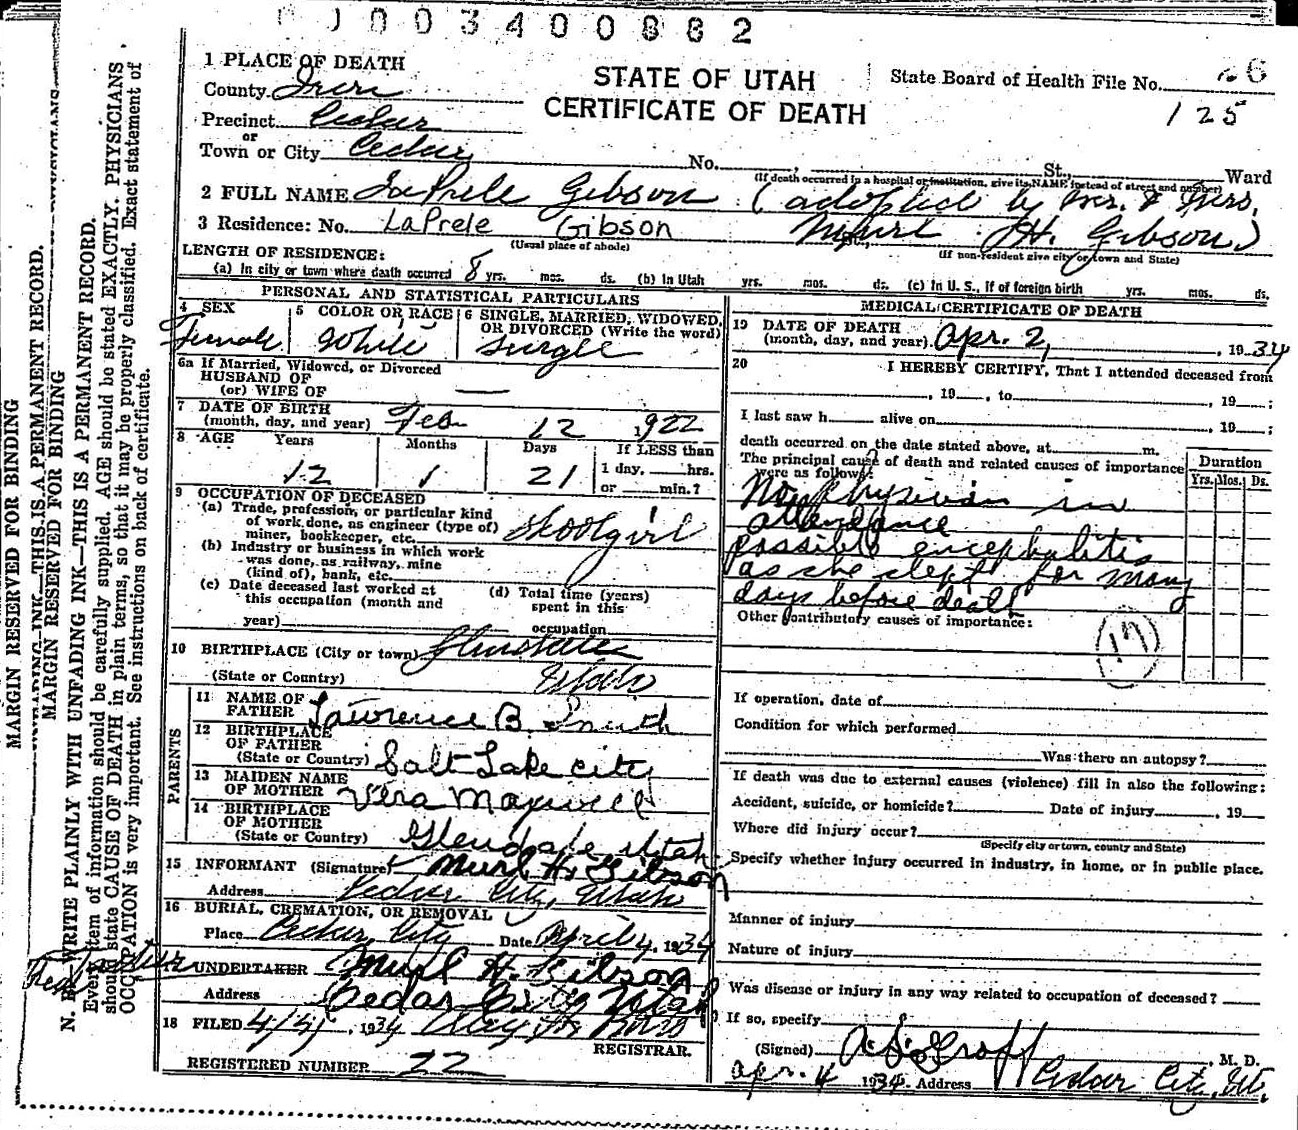 003400882
1 PLACE OF DEATH
STATE OF UTAH
CERTIFICATE OF DEATH
State Board of Health File No. 6
125
County Iron
Precinct Cedar
or
Town or City Cedar No. St., Ward
(If death occurred in a hospital or institution, give its NAME instead of street and number)
2 FULL NAME LaPrele Gibson (adopted by Mr. & Mrs.
3 Residence: No. LaPrele Gibson St., Murl H. Gibson)
(Usual place of abode) (If non-resident give city or town and State)
LENGTH OF RESIDENCE:
(a) In city or town where death occurred 8 yrs. mos. ds. (b) In Utah yrs. mos. ds. (c) In U. S., if of foreign birth yrs. mos. ds.
PERSONAL AND STATISTICAL PARTICULARS
4 SEX
Female
5 COLOR OR RACE
White
6 SINGLE, MARRIED, WIDOWED,
OR DIVORCED (Write the word)
Single
6a If Married, Widowed, or Divorced
HUSBAND OF
(or) WIFE OF —
7 DATE OF BIRTH
(month, day, and year) Feb 12 1922
8 AGE Years Months Days If LESS than
12 1 21 1 day, hrs.
or min.?
9 OCCUPATION OF DECEASED
(a) Trade, profession, or particular kind
of work done, as engineer (type of)
miner, bookkeeper, etc. Skoolgirl
(b) Industry or business in which work
was done, as railway, mine
(kind of), bank, etc.
(c) Date deceased last worked at
this occupation (month and
year)
(d) Total time (years)
spent in this
occupation
10 BIRTHPLACE (City or town) Glendale
(State or Country) Utah
PARENTS
11 NAME OF
FATHER Lawrence B. Smith
12 BIRTHPLACE
OF FATHER
(State or Country) Salt Lake City
13 MAIDEN NAME
OF MOTHER Vera Maxwell
14 BIRTHPLACE
OF MOTHER
(State or Country) Glendale Utah
15 INFORMANT (Signature) Murl H. Gibson
Address Cedar City, Utah
16 BURIAL, CREMATION, OR REMOVAL
Place Cedar City Date April 4, 1934
UNDERTAKER Murl H. Gibson
Address Cedar City Utah
18 FILED 4/5/, 1934
REGISTRAR.
REGISTERED NUMBER 22
MEDICAL CERTIFICATE OF DEATH
19 DATE OF DEATH
(month, day, and year) Apr. 2, , 1934
20 I HEREBY CERTIFY, That I attended deceased from
, 19 , to , 19 ;
I last saw h alive on , 19 ;
death occurred on the date stated above, at m.
The principal cause of death and related causes of importance
were as follows:
Duration
Yrs. Mos. Ds.
No physician in
attendance
possible encephalitis
as she slept for many
days before death
Other contributory causes of importance:
17
If operation, date of
Condition for which performed
Was there an autopsy?
If death was due to external causes (violence) fill in also the following:
Accident, suicide, or homicide? Date of injury , 19
Where did injury occur?
(Specify city or town, county and State)
Specify whether injury occurred in industry, in home, or in public place.
Manner of injury
Nature of injury
Was disease or injury in any way related to occupation of deceased?
If so, specify
(Signed) A. L. Graff , M. D.
Apr. 4 1934. Address Cedar City, Ut.
MARGIN RESERVED FOR BINDING
MARGIN RESERVED FOR BINDING
N. B.—WRITE PLAINLY WITH UNFADING INK—THIS IS A PERMANENT RECORD.
Every item of information should be carefully supplied. AGE should be stated EXACTLY. PHYSICIANS
should state CAUSE OF DEATH in plain terms, so that it may be properly classified. Exact statement of
OCCUPATION is very important. See instructions on back of certificate.